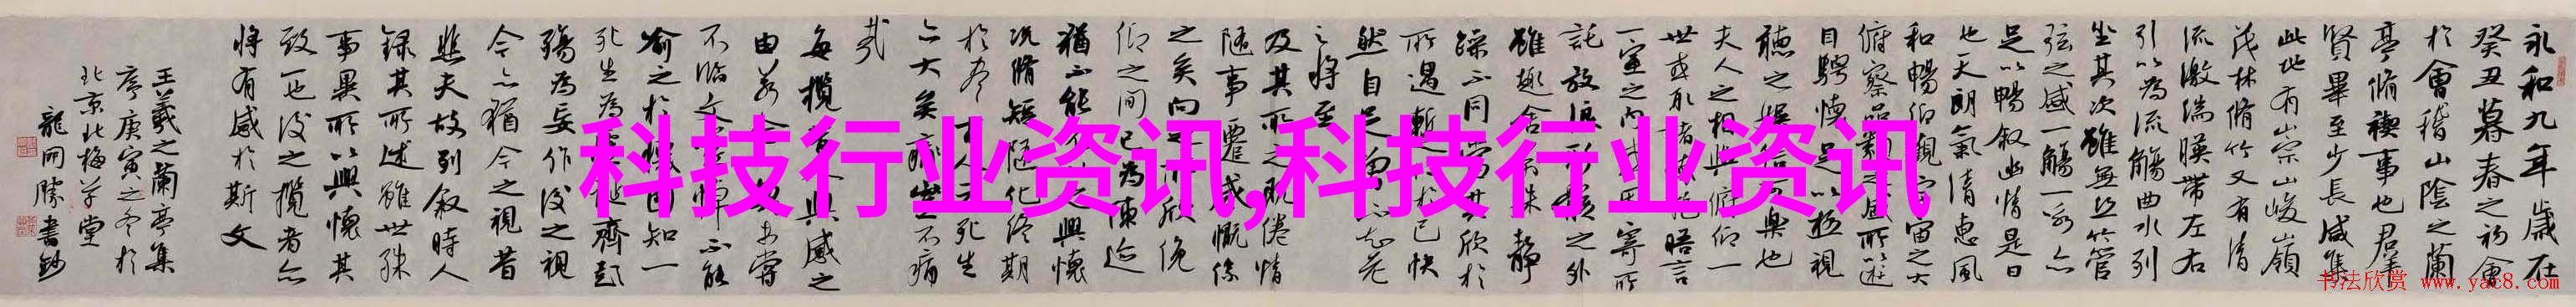 永和九年歲在
癸丑暮春之初會
於會稽山陰之蘭
亭脩禊事也羣
賢畢至少長咸集
此地有崇山峻嶺
茂林脩竹又有清
流激湍暎帶左右
引以為流觴曲水列
坐其次雖無絲竹管
弦之盛一觴一詠亦
足以暢敘幽情是日
也天朗氣清惠風
和暢仰觀宇宙之大
俯察品類之盛所以遊
目騁懷足以極視
聽之娛信可樂也
夫人之相與俯仰一
世或取諸懷抱晤言
一室之內或因寄所
託放浪形骸之外
雖趣舍萬殊靜
躁不同當其欣於
所遇暫得於己快
然自足曾不知老
之將至
及其所之既倦情
隨事遷感慨係
之矣向之所欣俛
仰之間已為陳迹
猶不能不以之興懷
況脩短隨化終期
於盡古人云死生
亦大矣豈不痛
哉
每攬昔人興感之
由若合一契未嘗
不臨文嗟悼不能
喻之於懷固知一
死生為虛誕齊彭
殤為妄作後之視
今亦猶今之視昔
悲夫故列敘時人
錄其所述雖世殊
事異所以興懷其
致一也後之攬者亦
將有感於斯文
王羲之蘭亭集
序庚寅之冬於
北京北梅草堂
龍開勝書鈔
科技行业资讯,科技行业资讯
书法欣赏 www.yac8.com